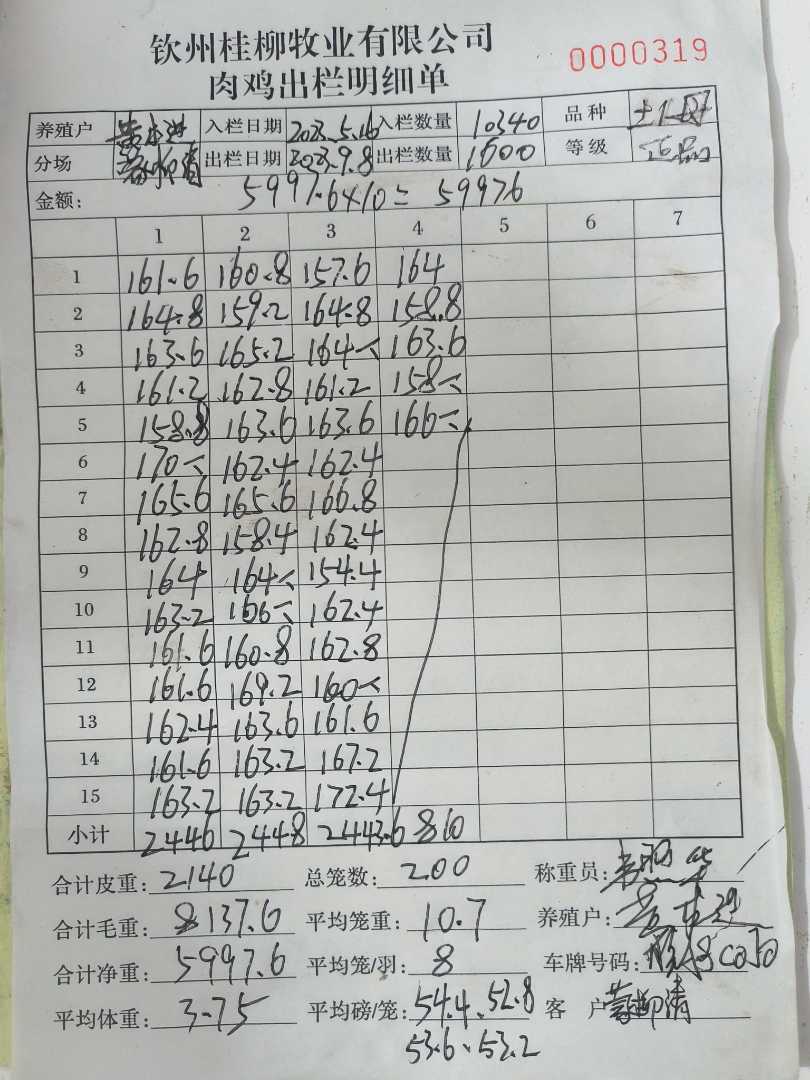 钦州桂柳牧业有限公司
0000319
肉鸡出栏明细单
养殖户 入栏日期 2023.5.16 入栏数量 10340 品种
分场 出栏日期 2023.9.8 出栏数量 1600 等级 正品
金额: 5997.6×10= 59976
1 2 3 4 5 6 7
1 161.6 160.8 157.6 164
2 164.8 159.2 164.8 158.8
3 163.6 165.2 164 163.6
4 161.2 162.8 161.2 158
5 158.8 163.6 163.6 166
6 170 162.4 162.4
7 165.6 165.6 166.8
8 162.8 158.4 162.4
9 164 164 154.4
10 163.2 166 162.4
11 161.6 160.8 162.8
12 161.6 169.2 160
13 162.4 163.6 161.6
14 161.6 163.2 167.2
15 163.2 163.2 172.4
小计 2446 2448 2443.6 810
合计皮重: 2140 总笼数: 200 称重员:
合计毛重: 8137.6 平均笼重: 10.7 养殖户:
合计净重: 5997.6 平均笼/羽: 8 车牌号码:
平均体重: 3.75 平均磅/笼: 54.4. 52.8 客户
53.6. 53.2